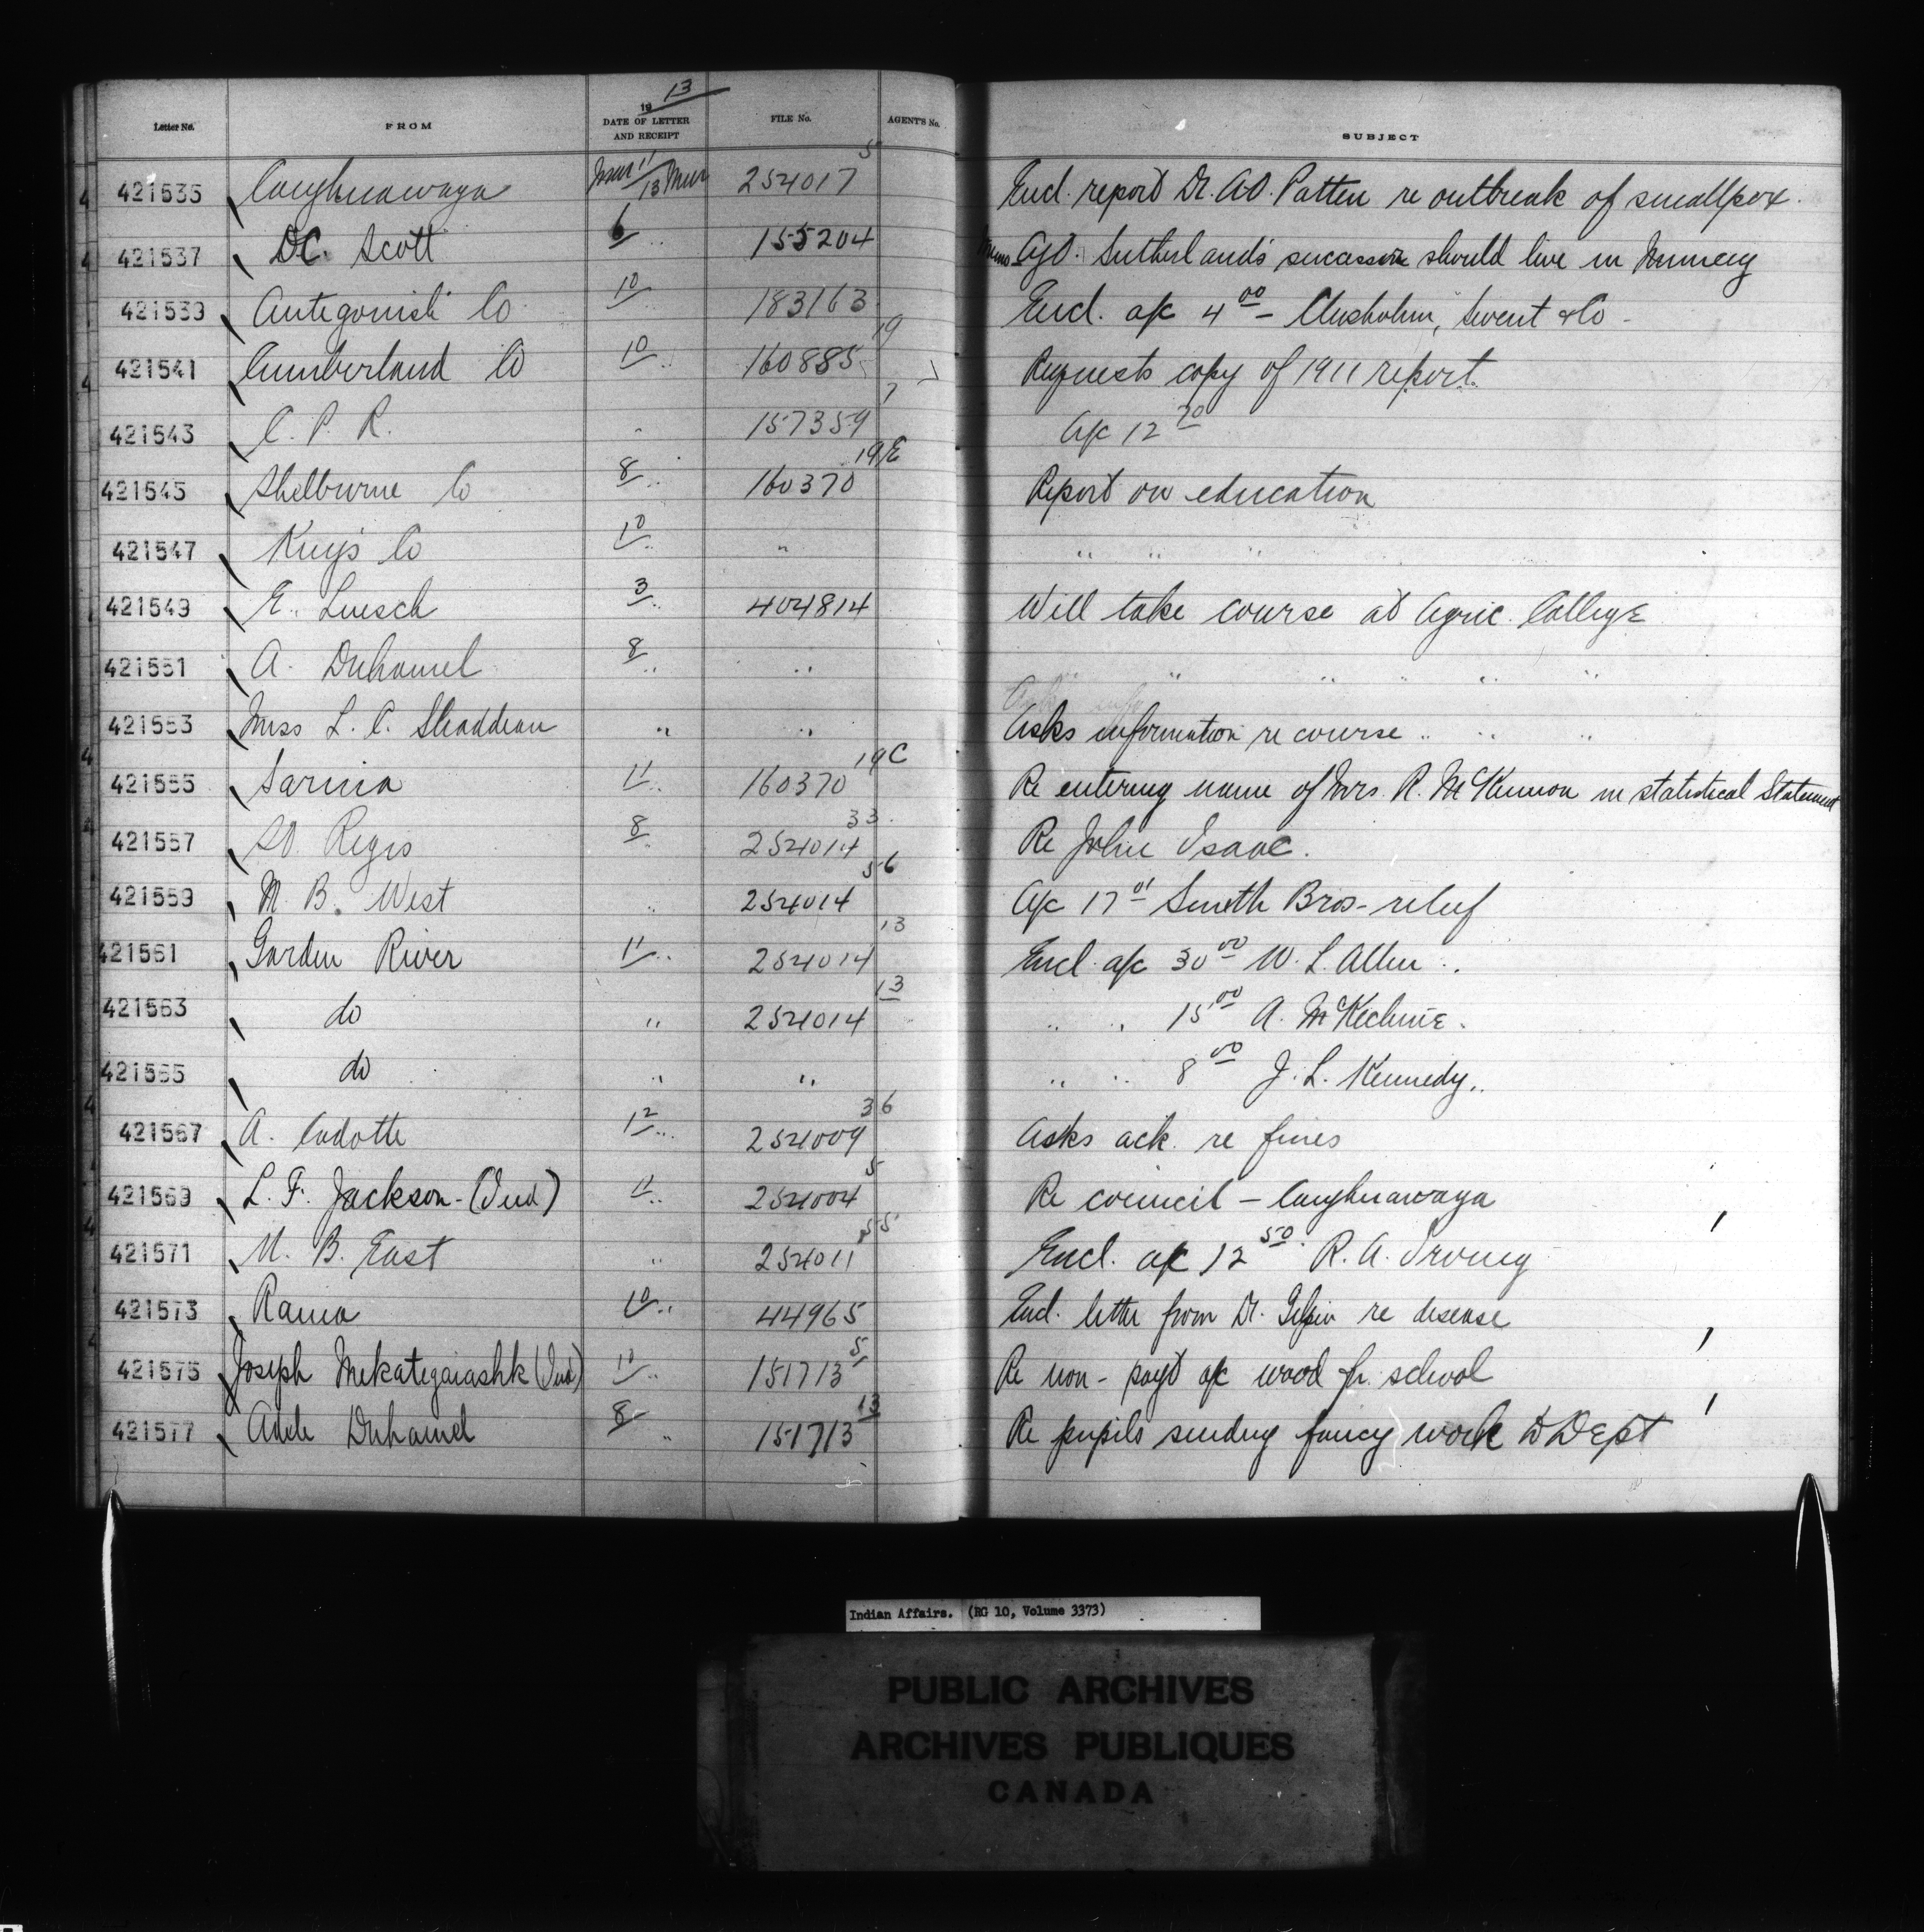 Letter No. FROM 19 13 DATE OF LETTER AND RECEIPT FILE No. AGENT'S No. SUBJECT
421535 Caughnawaga Mar 11/13 Mar 254017 5 Encl. report Dr. A.O. Patten re outbreak of smallpox.
421537 D.C. Scott 6 " 155204 Memo Agt. Sutherland's successor should live in Muncey
421539 Antegonish Co 10 " 183163 Encl. a/c 4 00 – Chisholm, Sweet & Co –
421541 Cumberland Co 10 " 160885 19 Requests copy of 1911 report.
421543 C. P. R. " 157359 7 A/c 12 20
421545 Shelburne Co 8 " 160370 19/E Report on education
421547 Kings Co 10 " " " " "
421549 E. Luesch 3 " 404814 Will take course at Agric. College
421551 A. Duhamel 8 " " " " " " "
421553 Miss L. C. Shaddeau " " Asks information re course " " "
421555 Sarnia 11 " 160370 19C Re entering name of Mrs. R. McKinnon in statistical Statement
421557 St. Regis 8 " 254014 33 Re John Isaac.
421559 M. B. West " 254014 56 A/c 17 01 Smith Bros – relief
421561 Garden River 11 " 254014 13 Encl. a/c 30 00 W. L. Allen "
421563 do " 254014 13 " " 15 00 A. McKechnie.
421565 do " " " " 8 00 J. L. Kennedy "
421567 A. Cadotte 12 " 254009 36 Asks ack. re fines
421569 L. F. Jackson – (Ind) 11 " 254004 5 Re council – Caughnawaga
421571 N. B. East " 254011 55 Encl. a/c 12 50 R. A. Irving
421573 Rama 10 " 44965 Encl. letter from Dr. Gilpin re disease
421575 Joseph Mekategaiashk (Ind) 10 " 151713 5 Re non-payt a/c wood fr. school
421577 Adele Duhamel 8 " 151713 13 Re pupils sending fancy work to Dept
Indian Affairs. (RG 10, Volume 3373)
PUBLIC ARCHIVES
ARCHIVES PUBLIQUES
CANADA